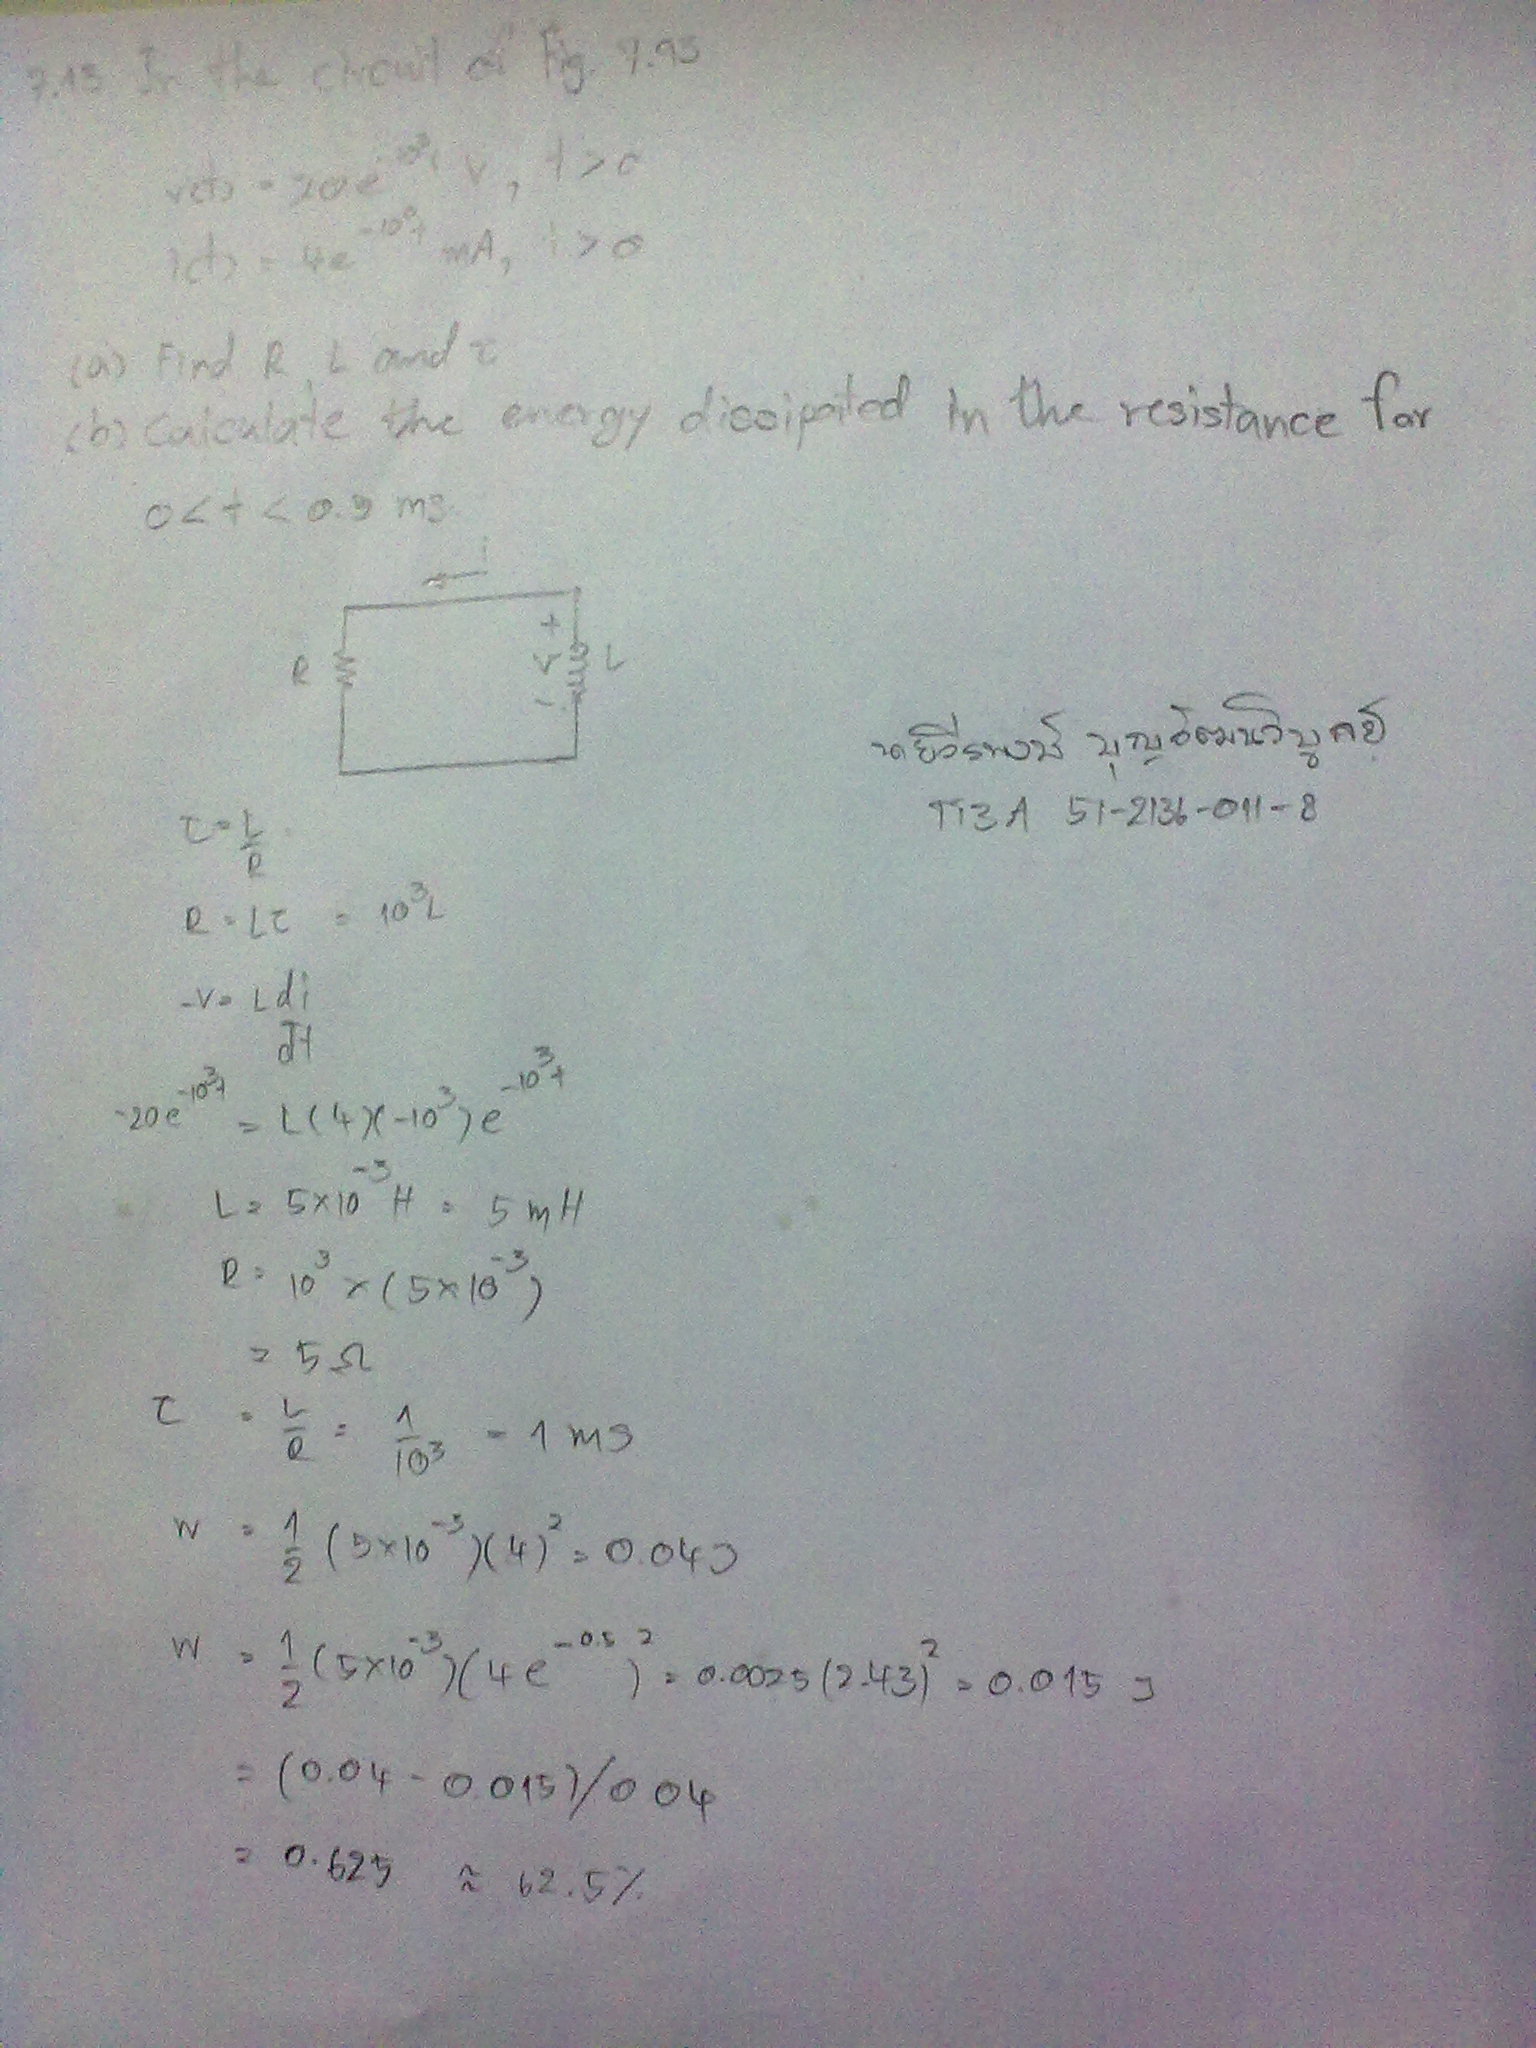 7.13 In the circuit of Fig. 7.93
v(t) = 20e^-10³t V, t>0
i(t) = 4e^-10³t mA, t>0
(a) Find R, L and τ
(b) Calculate the energy dissipated in the resistance for
0<t<0.5 ms
i
R + V - L
T13A 51-2136-011-8
τ = L/R
R = Lτ = 10³L
-V = L di/dt
-20e^-10³t = L(4)(-10³)e^-10³t
L = 5×10^-3 H = 5 mH
R = 10³ × (5×10^-3)
= 5Ω
τ = L/R = 1/10³ = 1 ms
W = 1/2 (5×10^-3)(4)² = 0.04J
W = 1/2 (5×10^-3)(4e^-0.5)² = 0.0025(2.43)² = 0.015 J
= (0.04 - 0.015)/0.04
= 0.625 ≈ 62.5%